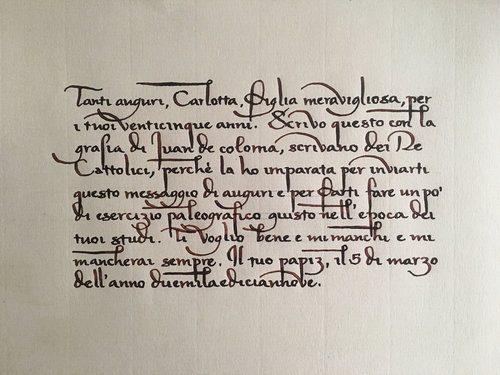 Tanti auguri, Carlotta, figlia meravigliosa, per
i tuoi venticinque anni. Scrivo questo con la
grafia di Juan de coloma, scrivano dei Re
Cattolici, perché la ho imparata per inviarti
questo messaggio di auguri e per farti fare un po'
di esercizio paleografico giusto nell'epoca dei
tuoi studi. Ti voglio bene e mi manchi e mi
mancherai sempre. Il tuo papiz, il 5 di marzo
dell'anno duemilaedicianhove.